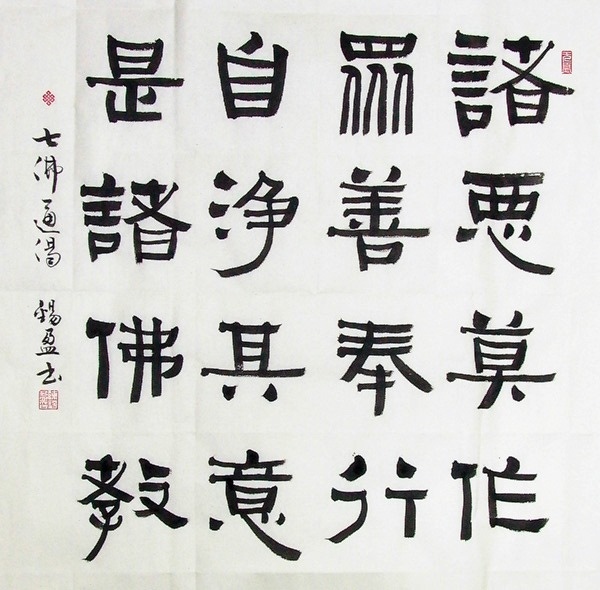 諸悪莫作
眾善奉行
自淨其意
是諸佛教
七佛通偈 錫盈书